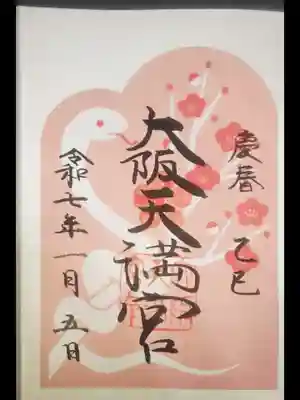 慶春 乙巳
大阪天満宮
令和七年一月五日